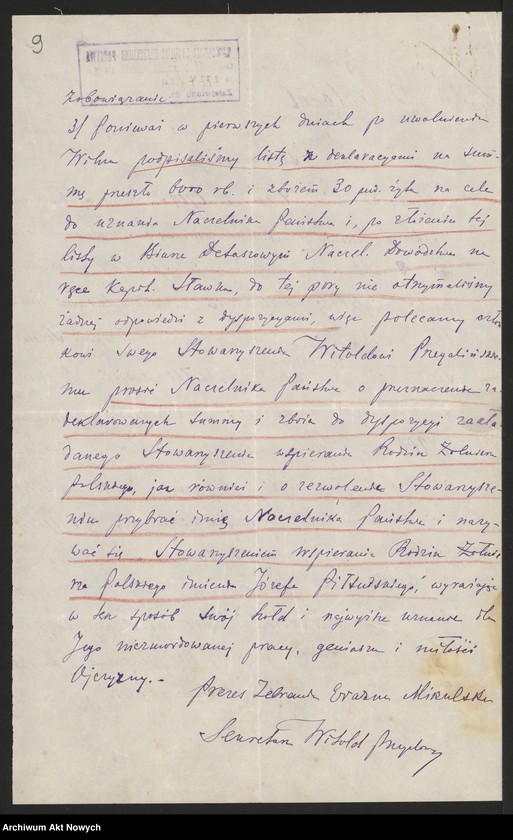 9
Zobowiązanie
3/ Ponieważ w pierwszych dniach po uwolnieniu
Wilna podpisaliśmy listę z deklaracyami na sum-
mę przeszło 6000 rb. i zbożem 30 pud. żyta na cele
do uznania Naczelnika Państwa i, po złożeniu tej
listy w Biurze Naczel. Dowództwa na
ręce Kapit. Sławka, do tej pory nie otrzymaliśmy
żadnej odpowiedzi z dyspozycyami, więc polecamy człon-
kowi swego Stowarzyszenia Witoldowi
mu prosić Naczelnika Państwa o przeznaczenie za-
deklarowanych summy i zboża do dyspozycyi zakła-
danego Stowarzyszenia wspierania Rodzin Żołnierza
Polskiego, jak również i o zezwolenie Stowarzysze-
niu przybrać imię Naczelnika Państwa i nazy-
wać się Stowarzyszeniem wspierania Rodzin Żołnie-
rza Polskiego imienia Józefa Piłsudskiego, wyrażając
w ten sposób swój hołd i najwyższe uznanie dla
Jego niezmordowanej pracy, geniuszu i miłości
Ojczyzny.-
Prezes Zebrania Mikulski
Sekretarz Witold
Archiwum Akt Nowych